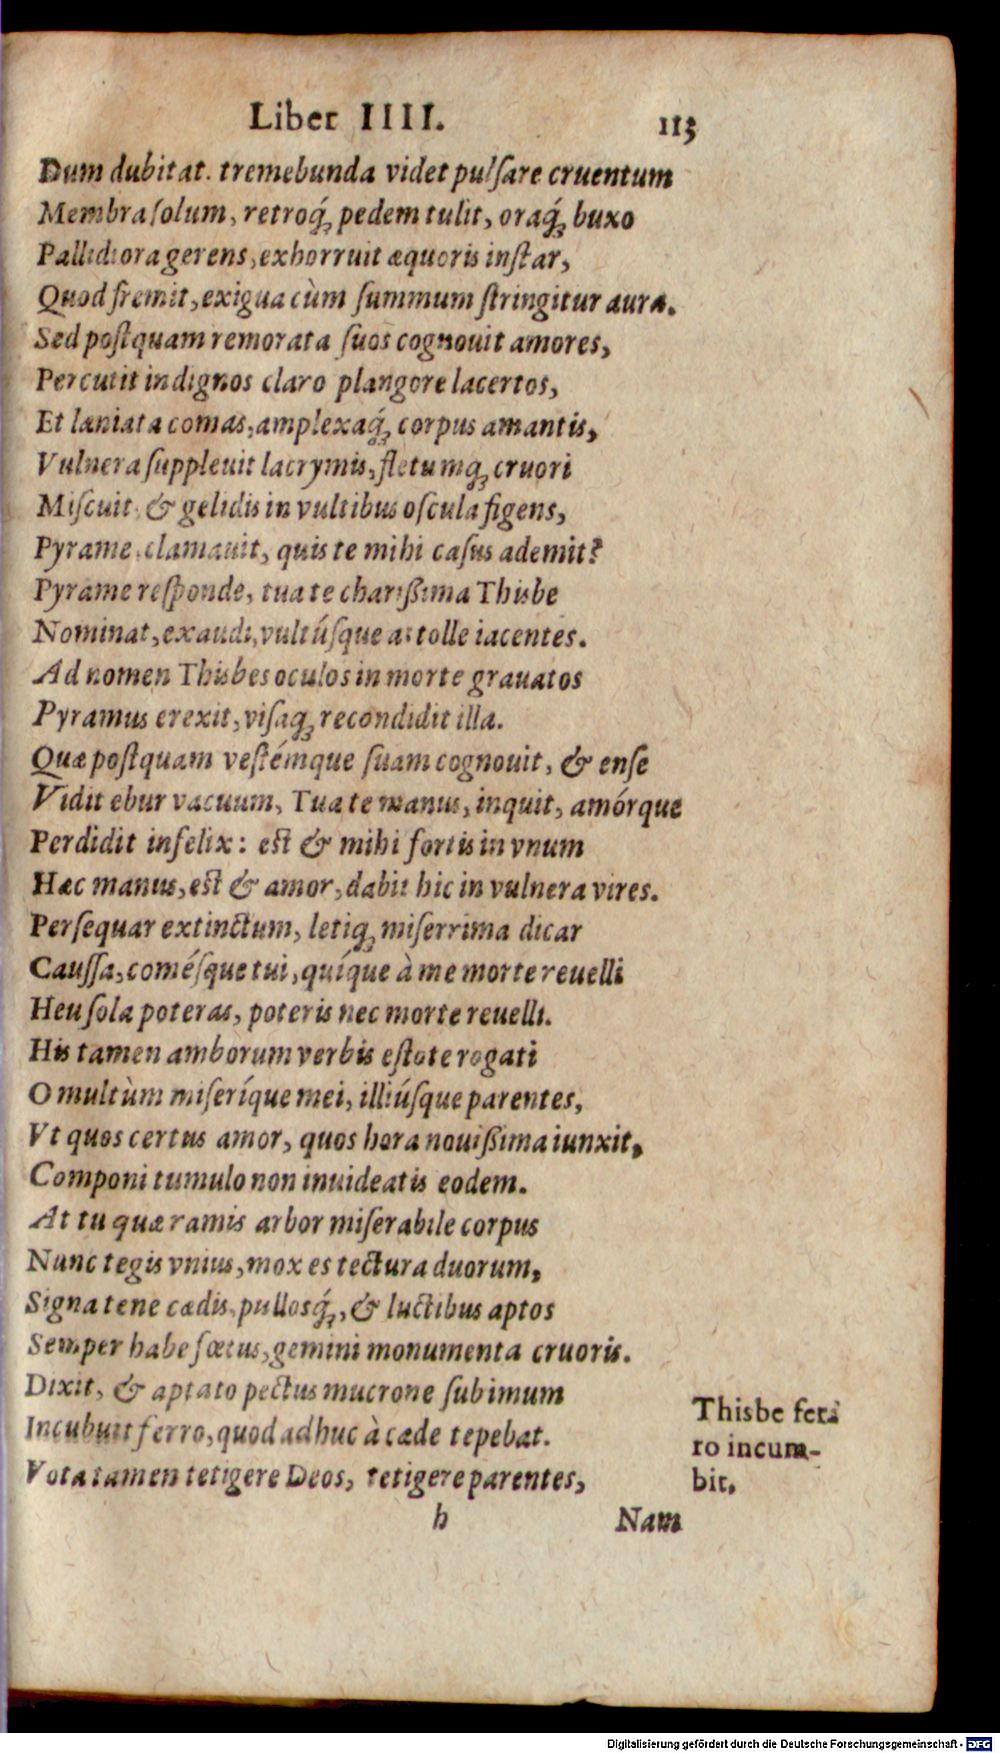 Liber IIII. 113
Dum dubitat. tremebunda videt pulſare cruentum
Membra ſolum, retroq́; pedem tulit, oraq́; buxo
Pallidiora gerens, exhorruit æquoris inſtar,
Quod fremit, exigua cùm ſummum ſtringitur aura.
Sed poſtquam remorata ſuos cognouit amores,
Percutit indignos claro plangore lacertos,
Et laniata comas, amplexaq́; corpus amantis,
Vulnera ſuppleuit lacrymis, fletumq; cruori
Miſcuit, & gelidis in vultibus oſcula figens,
Pyrame, clamauit, quis te mihi caſus ademit?
Pyrame reſponde, tua te chariſſima Thisbe
Nominat, exaudi, vultúſque attolle iacentes.
Ad nomen Thisbes oculos in morte grauatos
Pyramus erexit, viſaq; recondidit illa.
Quæ poſtquam veſtémque ſuam cognouit, & enſe
Vidit ebur vacuum, Tua te manus, inquit, amórque
Perdidit infelix: eſt & mihi fortis in vnum
Hæc manus, eſt & amor, dabit hic in vulnera vires.
Perſequar extinctum, letiq; miſerrima dicar
Cauſſa, coméſque tui, quíque à me morte reuelli
Heu ſola poteras, poteris nec morte reuelli.
His tamen amborum verbis eſtote rogati
O multùm miſeríque mei, illiúſque parentes,
Vt quos certus amor, quos hora nouiſſima iunxit,
Componi tumulo non inuideatis eodem.
At tu quæ ramis arbor miſerabile corpus
Nunc tegis vnius, mox es tectura duorum,
Signa tene cædis, pulloſq́;, & luctibus aptos
Semper habe fœtus, gemini monumenta cruoris.
Dixit, & aptato pectus mucrone ſub imum
Incubuit ferro, quod adhuc à cæde tepebat.
Vota tamen tetigere Deos, tetigere parentes,
Thisbe fer-
ro incum-
bit.
h Nam
Digitalisierung gefördert durch die Deutsche Forschungsgemeinschaft - DFG